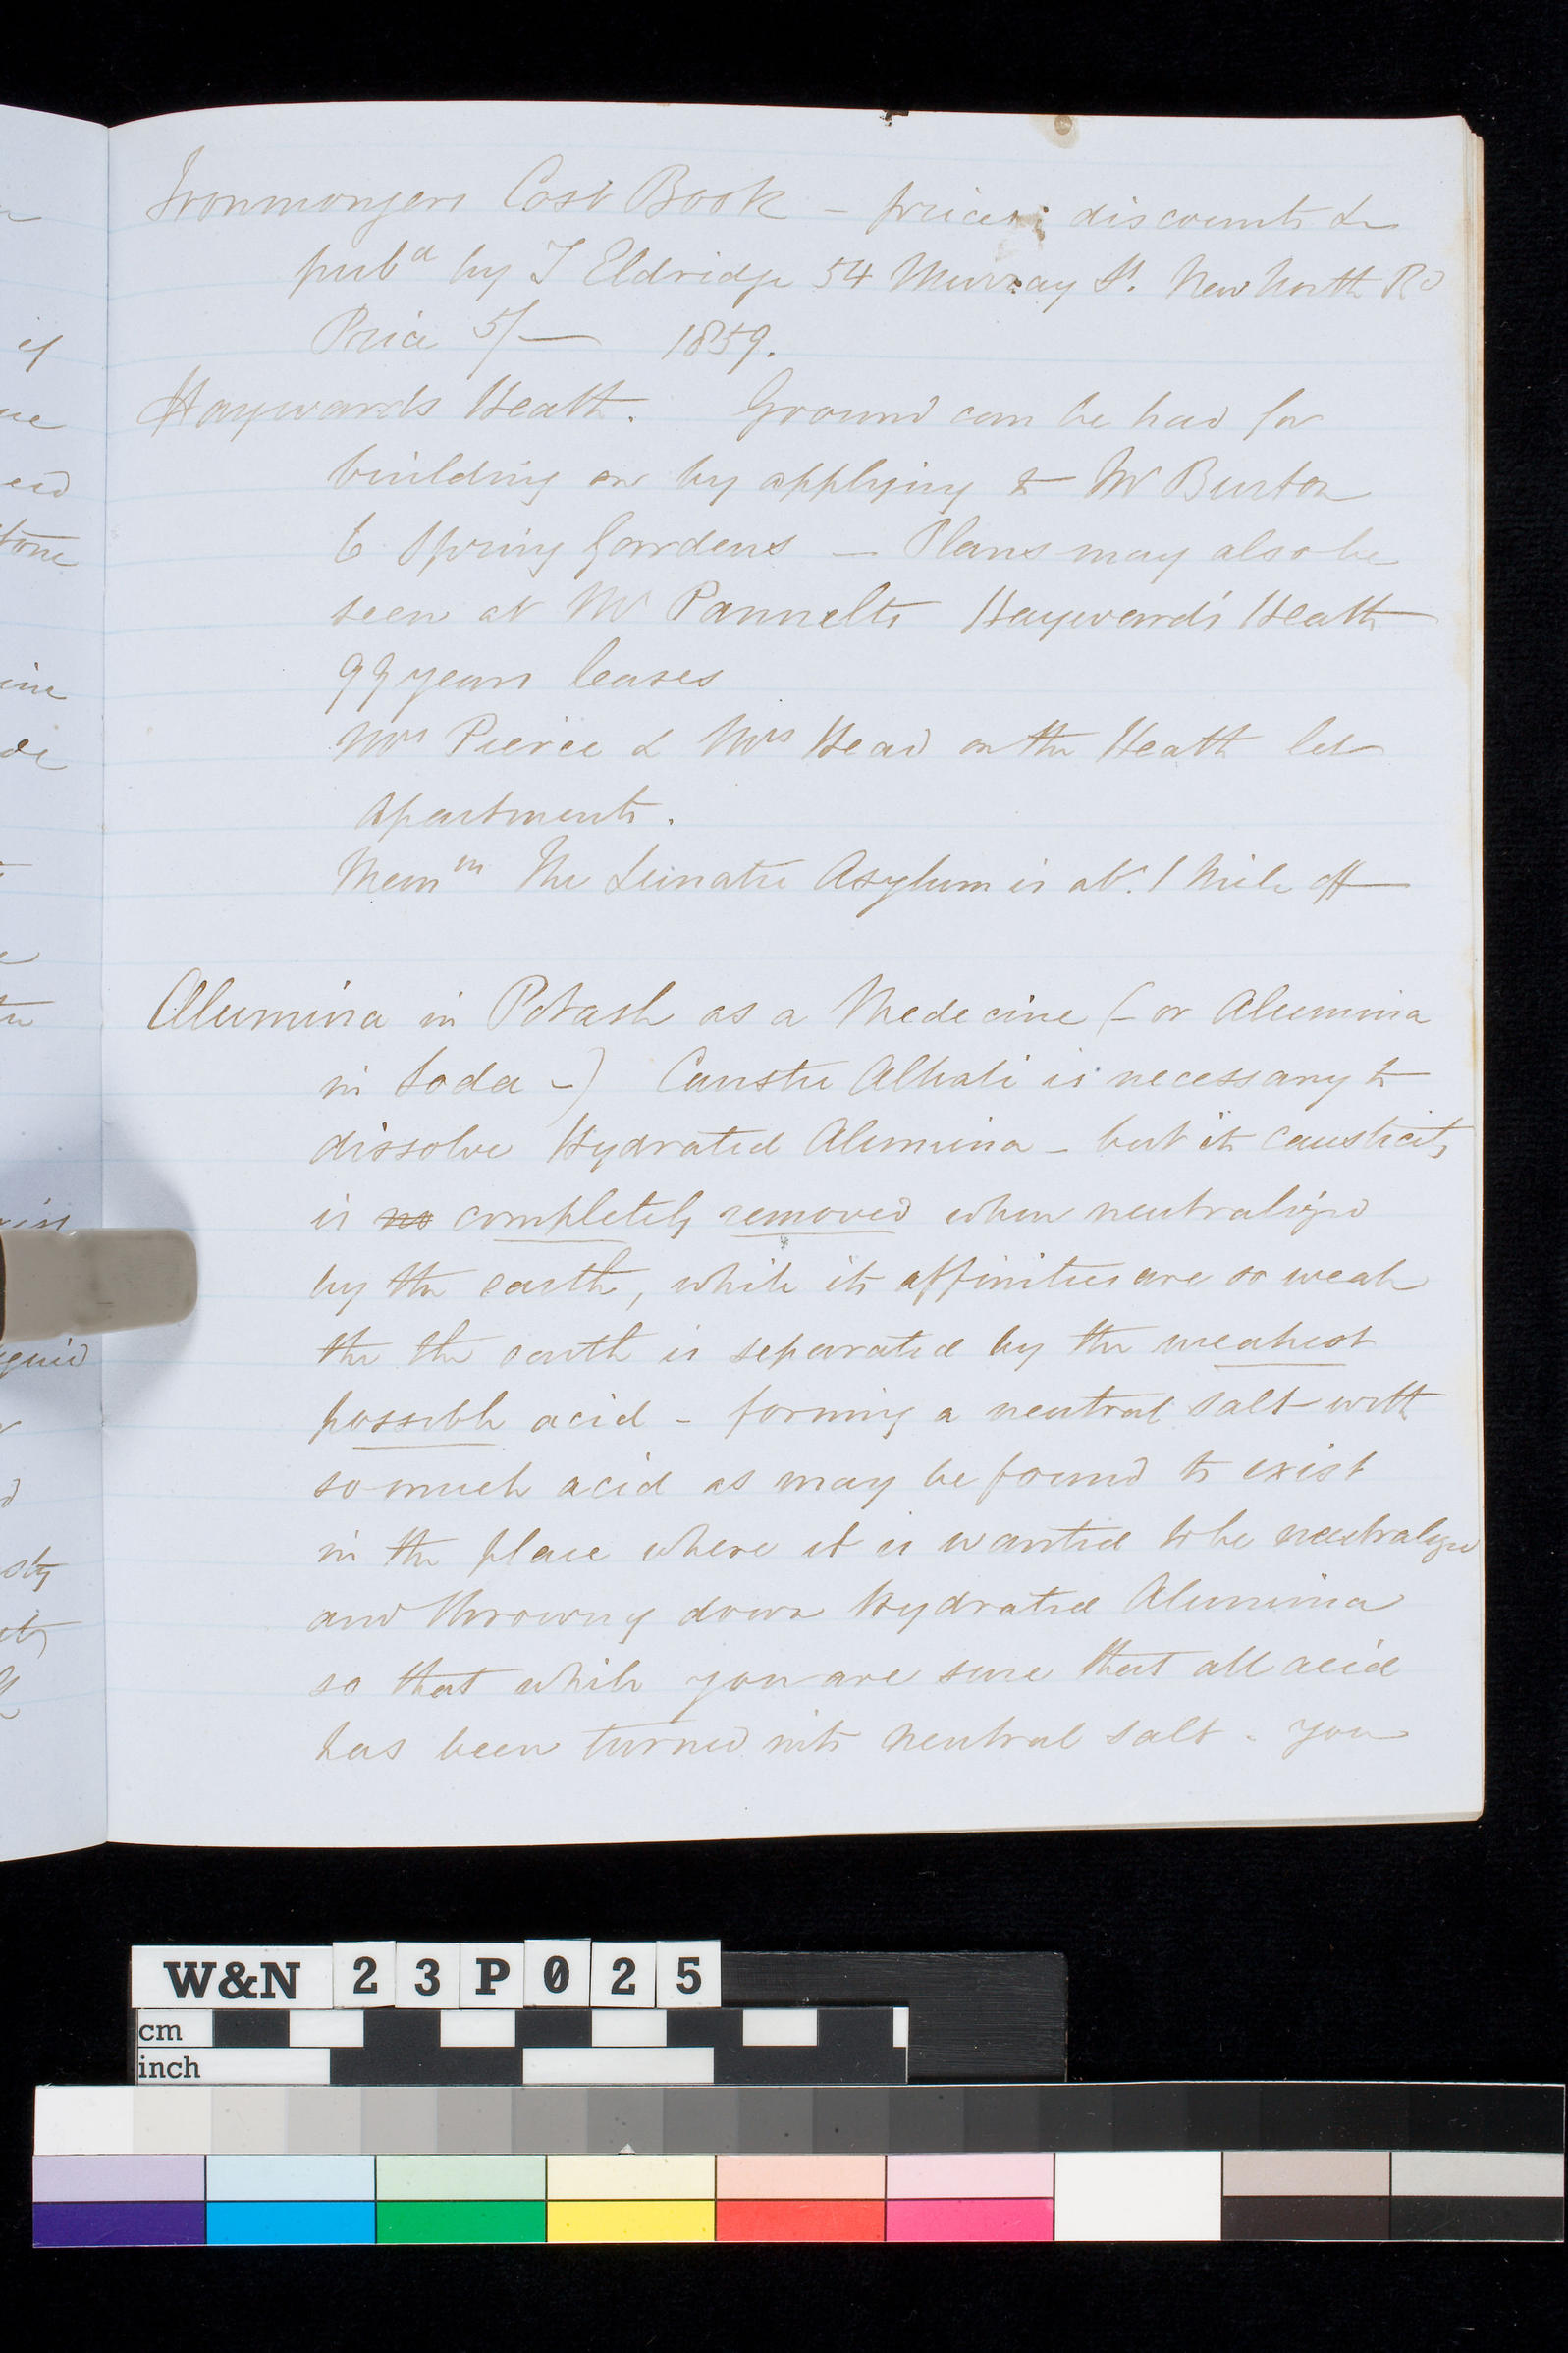 Ironmongers Cost Book - prices; discounts &c
pubd by T Eldridge 54 Murray St. New North Rd
Price 5/— 1859.
Haywards Heath. Ground can be had for
building on by applying to Mr Burton
6 Spring Gardens — Plans may also be
seen at Mr Pannelts Hayward's Heath
99 years leases
Mrs Pierce & Mrs Head on the Heath let
apartments.
Memm The Lunatic Asylum is abt. 1 Mile off
Alumina in Potash as a Medecine (- or Alumina
in Soda -) Caustic Alkali is necessary to
dissolve Hydrated Alumina - but its causticity
is no completely removed when neutralized
by the earth, while its affinities are so weak
the the earth is separated by the weakest
possible acid - forming a neutral salt with
so much acid as may be found to exist
in the place where it is wanted to be neutralized
and throwing down Hydrated Alumina
so that while you are sure that all acid
has been turned into neutral salt - you
W&N 23P025
cm
inch
ef
ue
tone
ine
de
quid
sty
ity